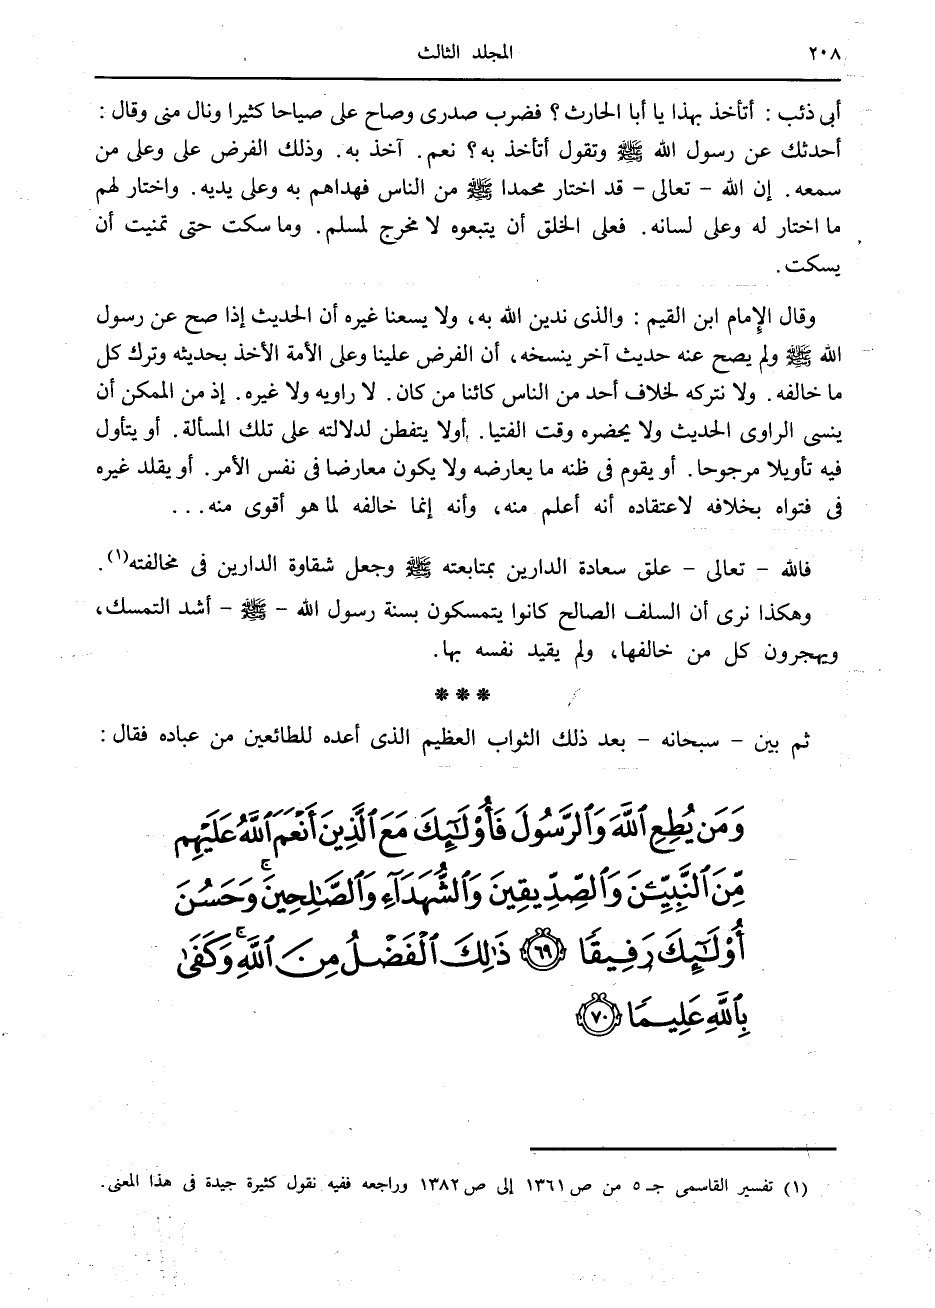 ٢٠٨ المجلد الثالث
أبى ذئب : أتأخذ بهذا يا أبا الحارث ؟ فضرب صدرى وصاح على صياحا كثيرا ونال منى وقال :
أحدثك عن رسول الله ﷺ وتقول أتأخذ به ؟ نعم . آخذ به . وذلك الفرض على وعلى من
سمعه . إن الله - تعالى - قد اختار محمدا ﷺ من الناس فهداهم به وعلى يديه . واختار لهم
ما اختار له وعلى لسانه . فعلى الخلق أن يتبعوه لا مخرج لمسلم . وما سكت حتى تمنيت أن
يسكت .
وقال الإمام ابن القيم : والذى ندين الله به ، ولا يسعنا غيره أن الحديث إذا صح عن رسول
الله ﷺ ولم يصح عنه حديث آخر ينسخه ، أن الفرض علينا وعلى الأمة الأخذ بحديثه وترك كل
ما خالفه . ولا نتركه لخلاف أحد من الناس كائنا من كان . لا راويه ولا غيره . إذ من الممكن أن
ينسى الراوى الحديث ولا يحضره وقت الفتيا . أولا يتفطن لدلالته على تلك المسألة . أو يتأول
فيه تأويلا مرجوحا . أو يقوم فى ظنه ما يعارضه ولا يكون معارضا فى نفس الأمر . أو يقلد غيره
فى فتواه بخلافه لاعتقاده أنه أعلم منه ، وأنه إنما خالفه لما هو أقوى منه ...
فالله - تعالى - علق سعادة الدارين بمتابعته ﷺ وجعل شقاوة الدارين فى مخالفته (١) .
وهكذا نرى أن السلف الصالح كانوا يتمسكون بسنة رسول الله - ﷺ - أشد التمسك ،
ويهجرون كل من خالفها ، ولم يقيد نفسه بها .
***
ثم بين - سبحانه - بعد ذلك الثواب العظيم الذى أعده للطائعين من عباده فقال :
وَمَن يُطِعِ ٱللَّهَ وَٱلرَّسُولَ فَأُو۟لَـٰٓئِكَ مَعَ ٱلَّذِينَ أَنْعَمَ ٱللَّهُ عَلَيْهِم
مِّنَ ٱلنَّبِيِّـۧنَ وَٱلصِّدِّيقِينَ وَٱلشُّهَدَآءِ وَٱلصَّـٰلِحِينَ ۚ وَحَسُنَ
أُو۟لَـٰٓئِكَ رَفِيقًا ٦٩ ذَٰلِكَ ٱلْفَضْلُ مِنَ ٱللَّهِ ۚ وَكَفَىٰ
بِٱللَّهِ عَلِيمًا ٧٠
(١) تفسير القاسمى جـ ٥ من ص ١٣٦١ إلى ص ١٣٨٢ وراجعه ففيه نقول كثيرة جيدة فى هذا المعنى .